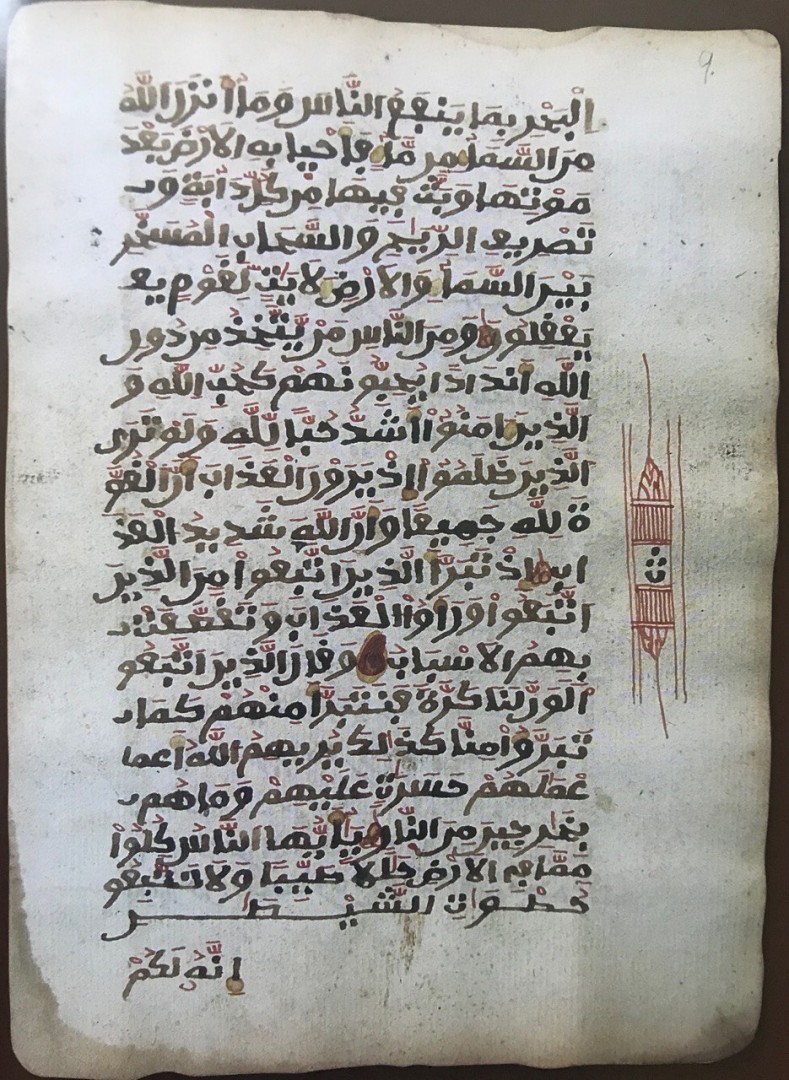 9.
الْبَحْرِ بِمَا يَنفَعُ النَّاسَ وَمَا أَنزَلَ اللَّهُ
مِنَ السَّمَاءِ مِن مَّاءٍ فَأَحْيَا بِهِ الْأَرْضَ بَعْدَ
مَوْتِهَا وَبَثَّ فِيهَا مِن كُلِّ دَابَّةٍ وَ
تَصْرِيفِ الرِّيَاحِ وَالسَّحَابِ الْمُسَخَّرِ
بَيْنَ السَّمَاءِ وَالْأَرْضِ لَآيَاتٍ لِّقَوْمٍ يع
يَعْقِلُونَ وَمِنَ النَّاسِ مَنْ يَّتَّخِذُ مِن دُونِ
اللَّهِ أَندَادًا يُحِبُّونَهُمْ كَحُبِّ اللَّهِ وَ
الَّذِينَ ءَامَنُوا أَشَدُّ حُبًّا لِّلَّهِ وَلَوْ تَرَى
الَّذِينَ ظَلَمُوا إِذْ يَرَوْنَ الْعَذَابَ أَنَّ الْقُوَّ
ةَ لِلَّهِ جَمِيعًا وَأَنَّ اللَّهَ شَدِيدُ الْعَذَ
ابِ إِذْ تَبَرَّأَ الَّذِينَ اتُّبِعُوا مِنَ الَّذِينَ
اتَّبَعُوا وَرَأَوُا الْعَذَابَ وَتَقَطَّعَتْ
بِهِمُ الْأَسْبَابُ وَقَالَ الَّذِينَ اتَّبَعُو
اْ لَوْ أَنَّ لَنَا كَرَّةً فَنَتَبَرَّأَ مِنْهُمْ كَمَا
تَبَرَّءُوا مِنَّا كَذَلِكَ يُرِيهِمُ اللَّهُ أَعما
عْمَلَهُمْ حَسَرَتٍ عَلَيْهِمْ وَمَا هُم
بِخَرِجِينَ مِنَ النَّارِ يَأَيُّهَا النَّاسُ كُلُوا
مِمَّا فِي الْأَرْضِ حَلَلًا طَيِّبًا وَلَا تَتَّبِعُو
خُطُوَتِ الشَّيْطَنِ
إِنَّهُ لَكُمْ
ث